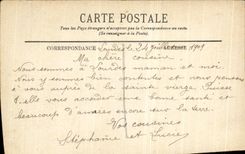 CARTE POSTALE
Tous les Pays étrangers n'acceptent pas la Correspondance au recto
(Se renseigner à la Poste)
CORRESPONDANCE Lourdes le 24 1909
Ma chère cousine
Nous sommes à Lourdes maman et moi
Nous y sommes bien contentes et nous pensons
à vous auprès de la sainte vierge. Puisse
t-elle vous accorder une bonne santé et
beaucoup d'années encore sur la terre.
Vos cousines
Stéphanie et